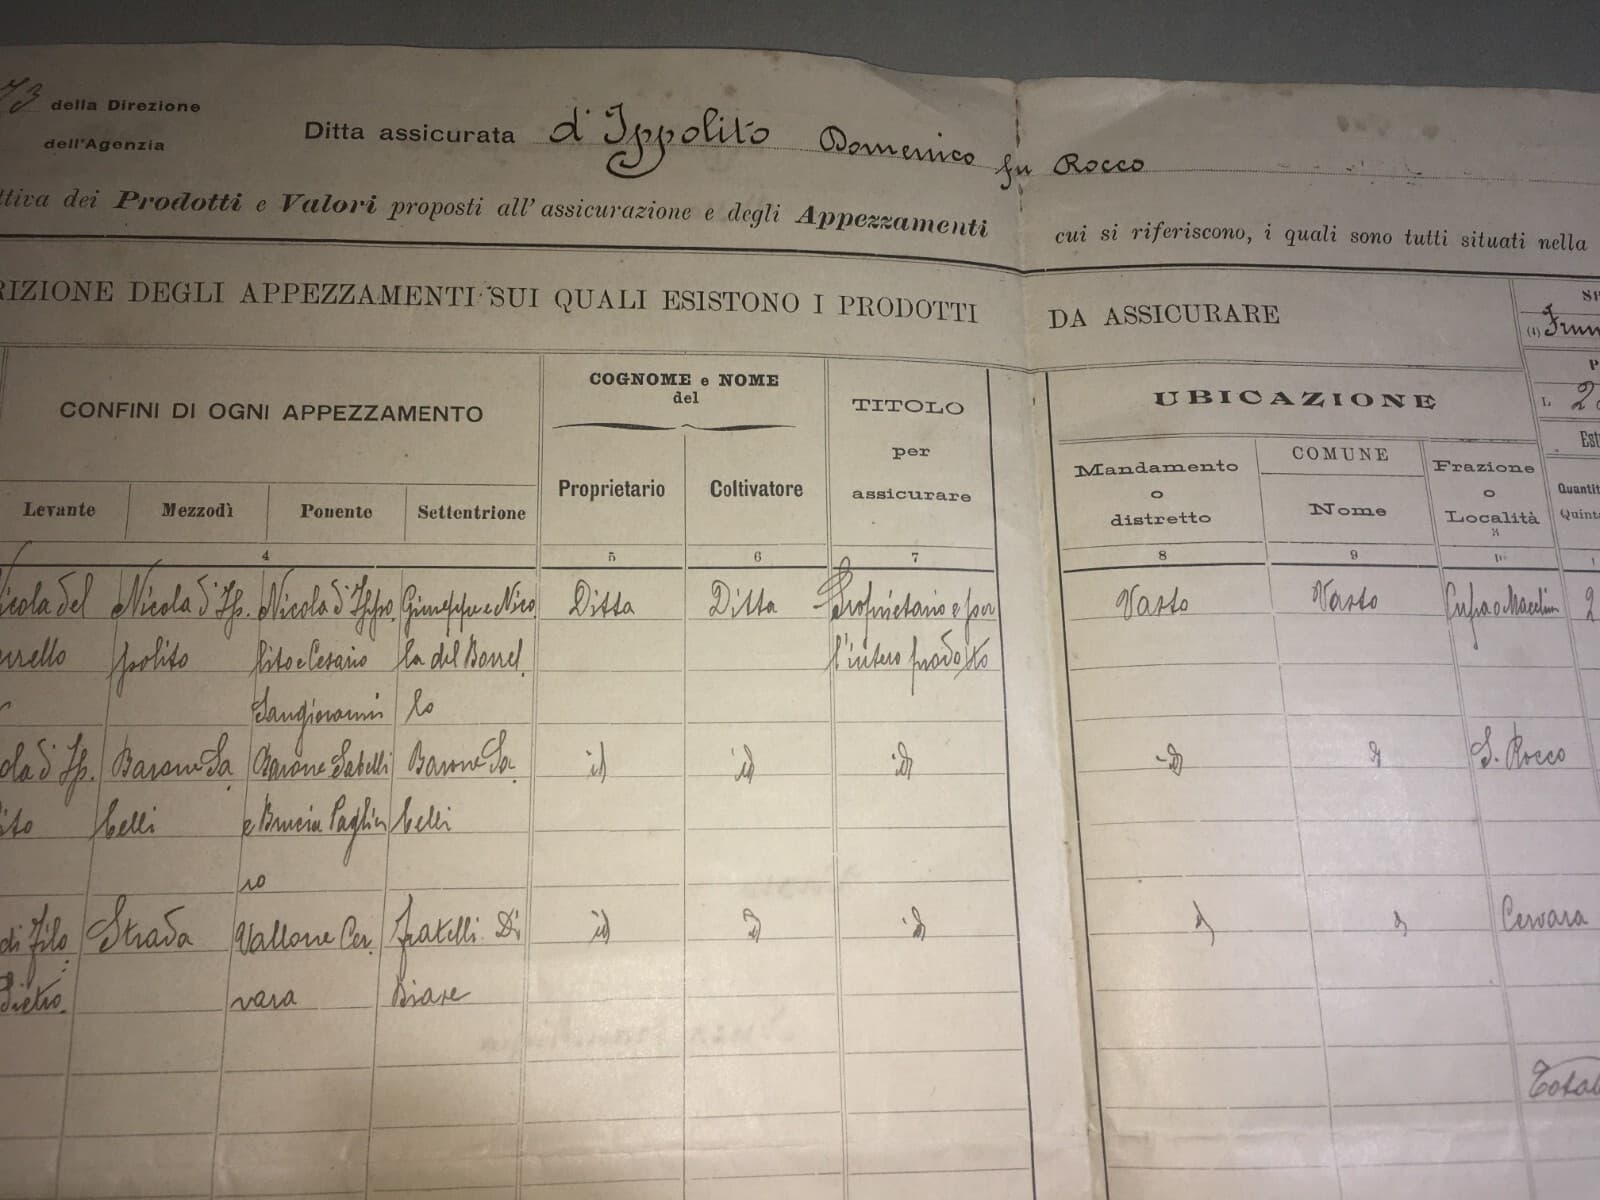 73 della Direzione
dell'Agenzia
Ditta assicurata d'Ippolito Domenico fu Rocco
ttiva dei Prodotti e Valori proposti all'assicurazione e degli Appezzamenti cui si riferiscono, i quali sono tutti situati nella
RIZIONE DEGLI APPEZZAMENTI SUI QUALI ESISTONO I PRODOTTI DA ASSICURARE
(1) Frum
CONFINI DI OGNI APPEZZAMENTO
COGNOME e NOME
del
TITOLO
per
assicurare
UBICAZIONE
L. 2
Est
Levante Mezzodì Ponente Settentrione
Proprietario Coltivatore
Mandamento
o
distretto
COMUNE
Nome
Frazione
o
Località
Quantit
Quinta
4 5 6 7 8 9 10
icola del Nicola d'Ip. Nicola d'Ippo. Giuseppe e Nico Ditta Ditta Proprietario e per Vasto Vasto 2
rrello polito lito e Cesario la del Borrel l'intero prodotto
Sangiovanni lo
ola d'Ip. Barone Sa Barone Sabelli Barone Sa id id id id d S. Rocco
ito belli e Brucia Paglia belli
ro
di Filo Strada Vallone Cer. fratelli Di id d id d d Cervara
Pietro. vara Biase
Total